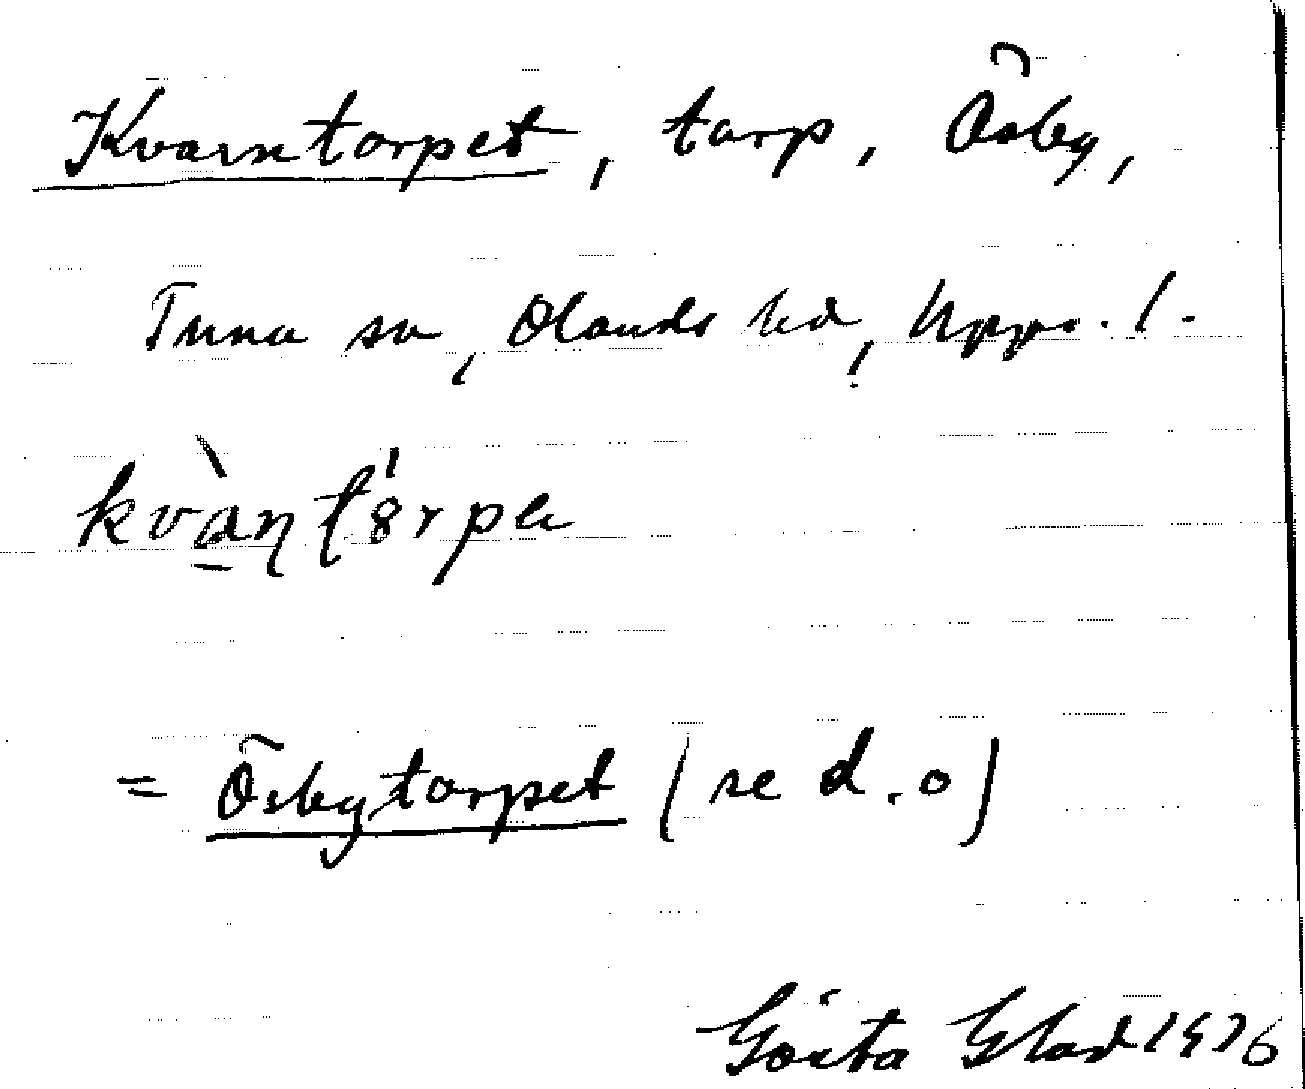 Kvarntorpet, torp, Ösby,
Tuna sn, Olands hd, Upps. l.
kvàṇʈ8rpə
= Ösbytorpet (se d.o)
Gösta Glad 1976